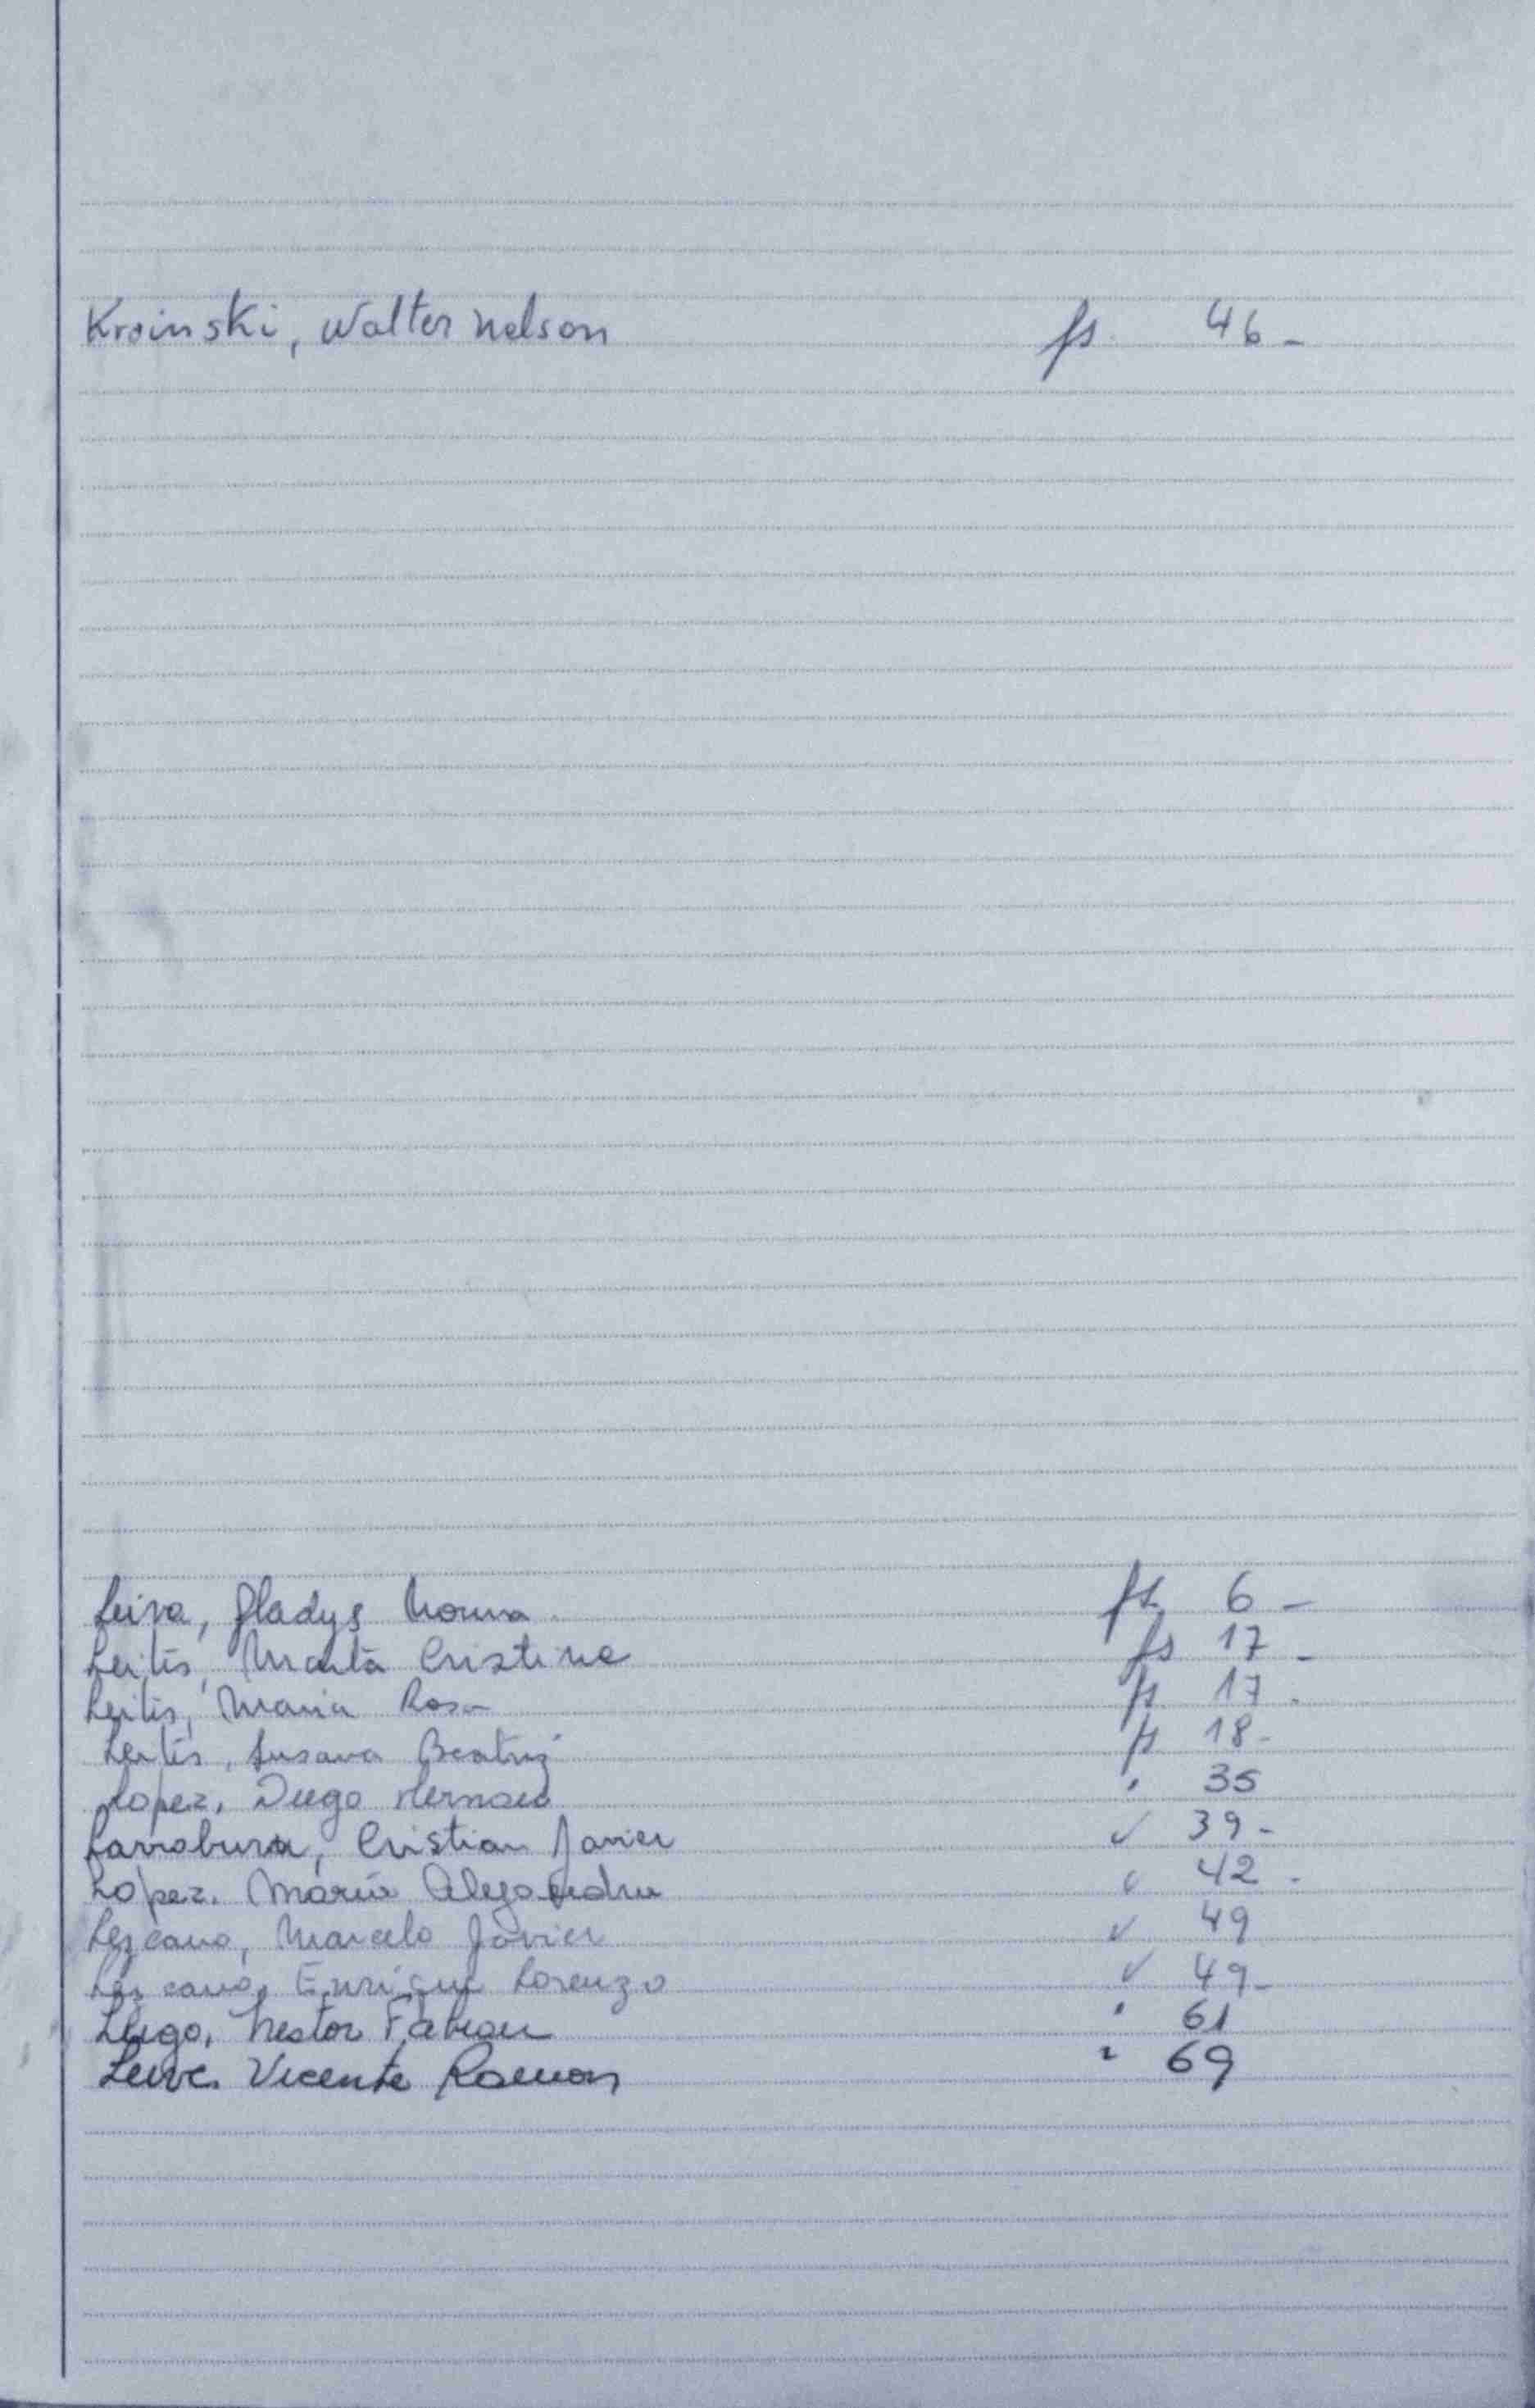 Kroinski, Walter Nelson fs. 46 -
Leiva, Gladys Norma fs. 6 -
Leites, Marta Cristina fs 17 -
Leites, Maria Rosa fs. 17 .
Leites, Susana Beatriz fs 18 -
Lopez, Diego Hernan " 35
Larroburu, Cristian Javier " 39 -
Lopez. María Alejandra " 42 -
Lezcano, Marcelo Javier " 49
Lezcano, Enrique Lorenzo " 49 -
Lugo, Nestor Fabian " 61
Leiva Vicente Ramon " 69